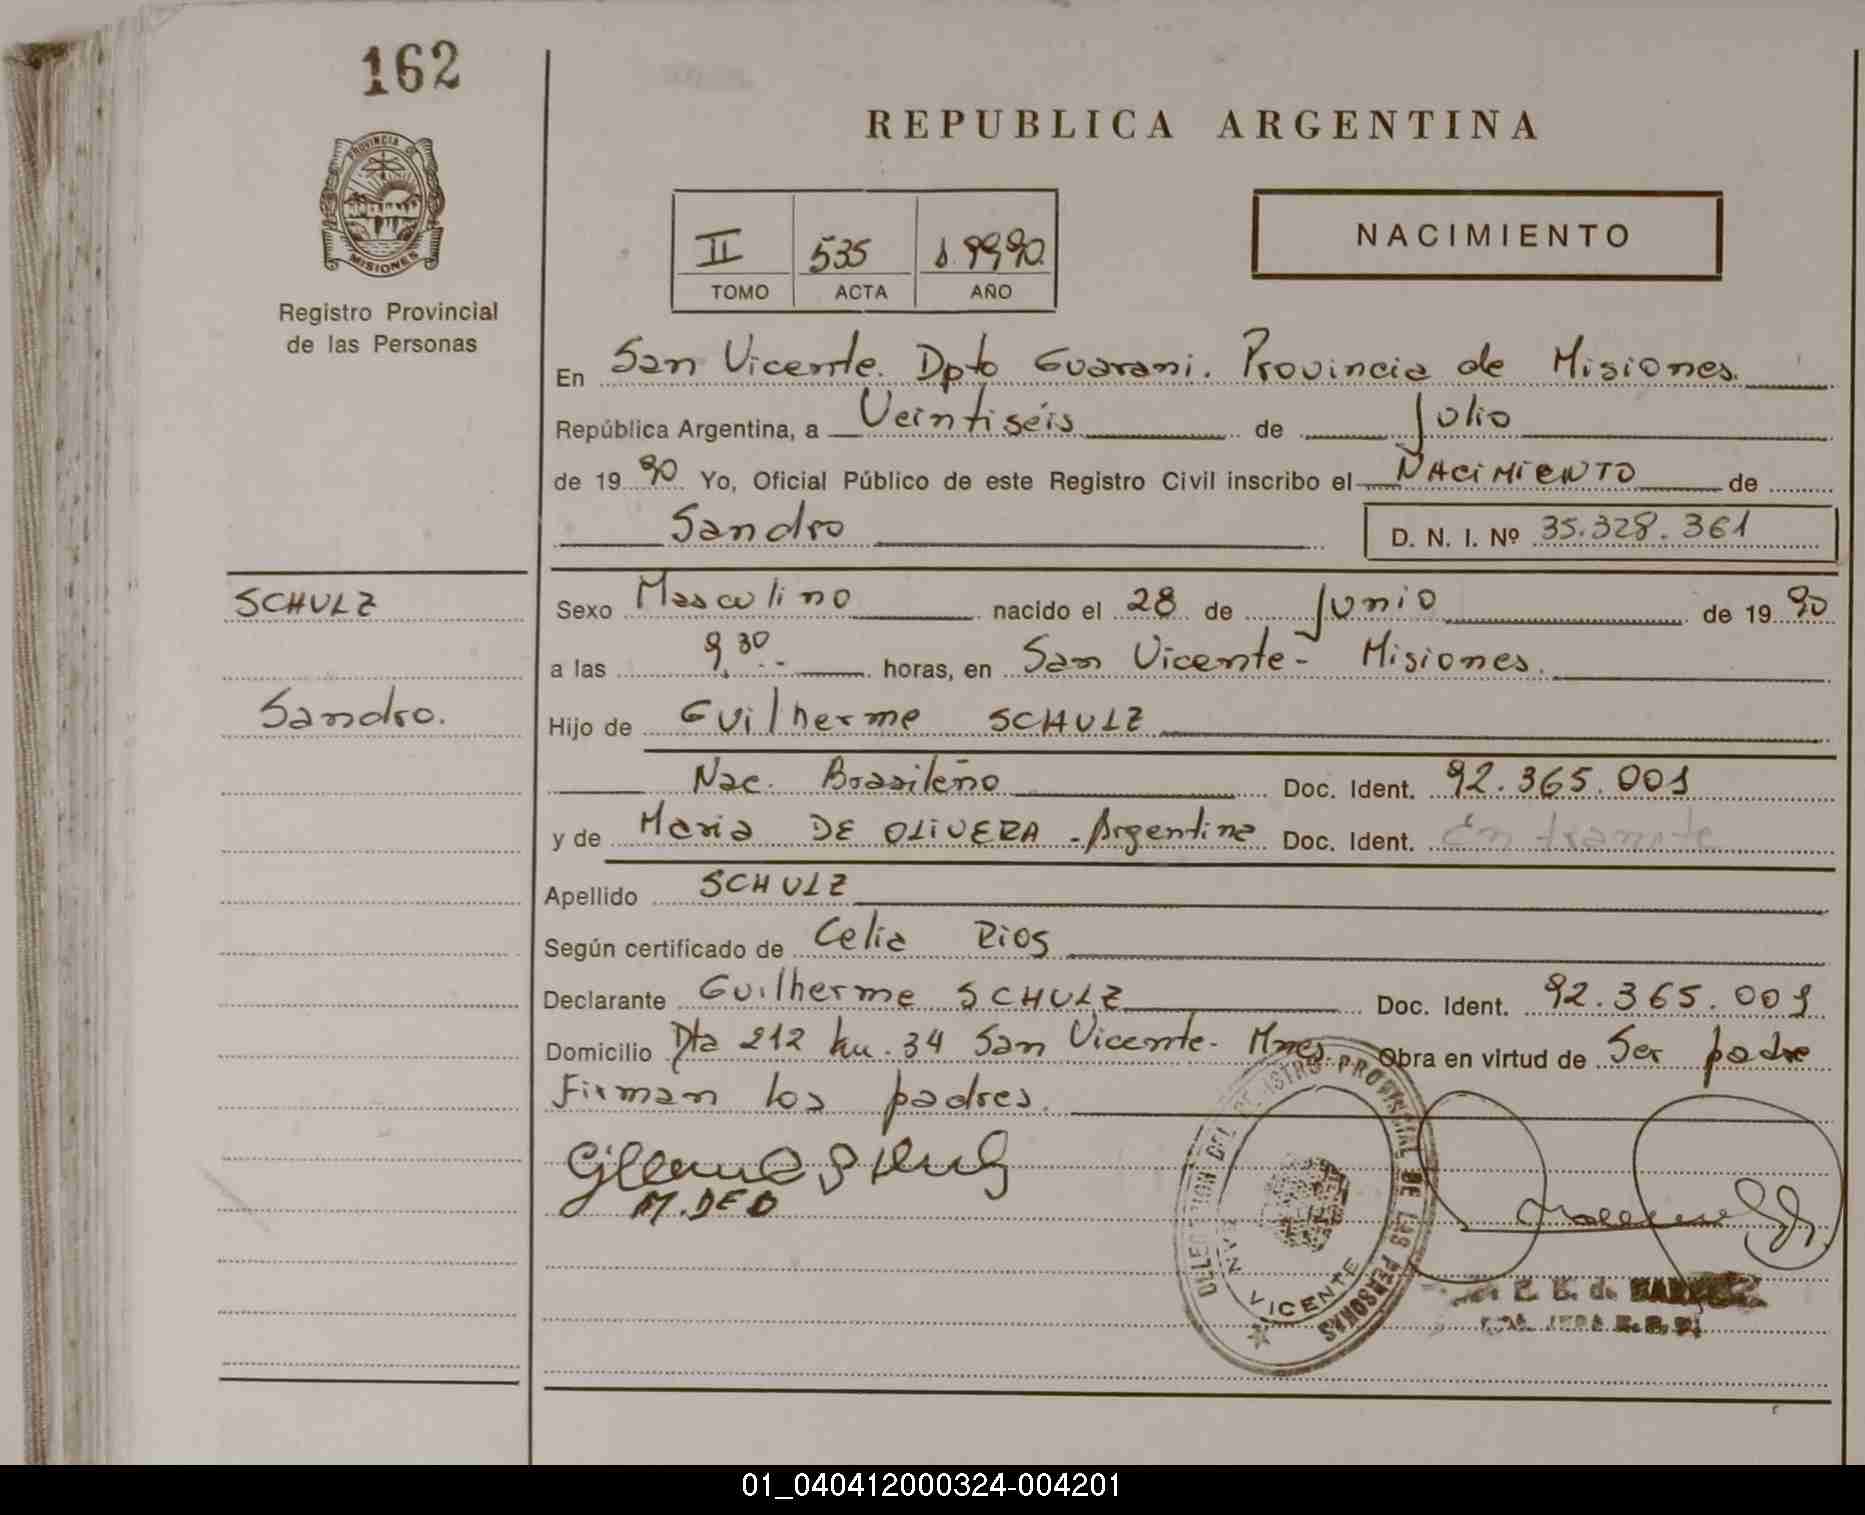 162
REPUBLICA ARGENTINA
PROVINCIA DE
MISIONES
Registro Provincial
de las Personas
II 535 1.990.
TOMO ACTA AÑO
NACIMIENTO
En San Vicente. Dpto Guarani. Provincia de Misiones.
República Argentina, a Veintiséis de Julio
de 19 90 Yo, Oficial Público de este Registro Civil inscribo el NACIMIENTO de
Sandro D. N. I. Nº 35.328.361
SCHULZ
Sandro.
Sexo Masculino nacido el 28 de Junio de 19 90
a las 9,30.- horas, en San Vicente- Misiones.
Hijo de Guilherme SCHULZ
Nac. Brasileño Doc. Ident. 92.365.001
y de Maria DE OLIVERA - Argentina Doc. Ident. En tramite
Apellido SCHULZ
Según certificado de Celia Rios
Declarante Guilherme SCHULZ Doc. Ident. 92.365.001
Domicilio Dta 212 km. 34 San Vicente- Mnes. Obra en virtud de Ser padre
Firman los padres.
M. DEO
DELEGACION DEL REGISTRO PROVINCIAL DE LAS PERSONAS
SAN VICENTE
01_040412000324-004201